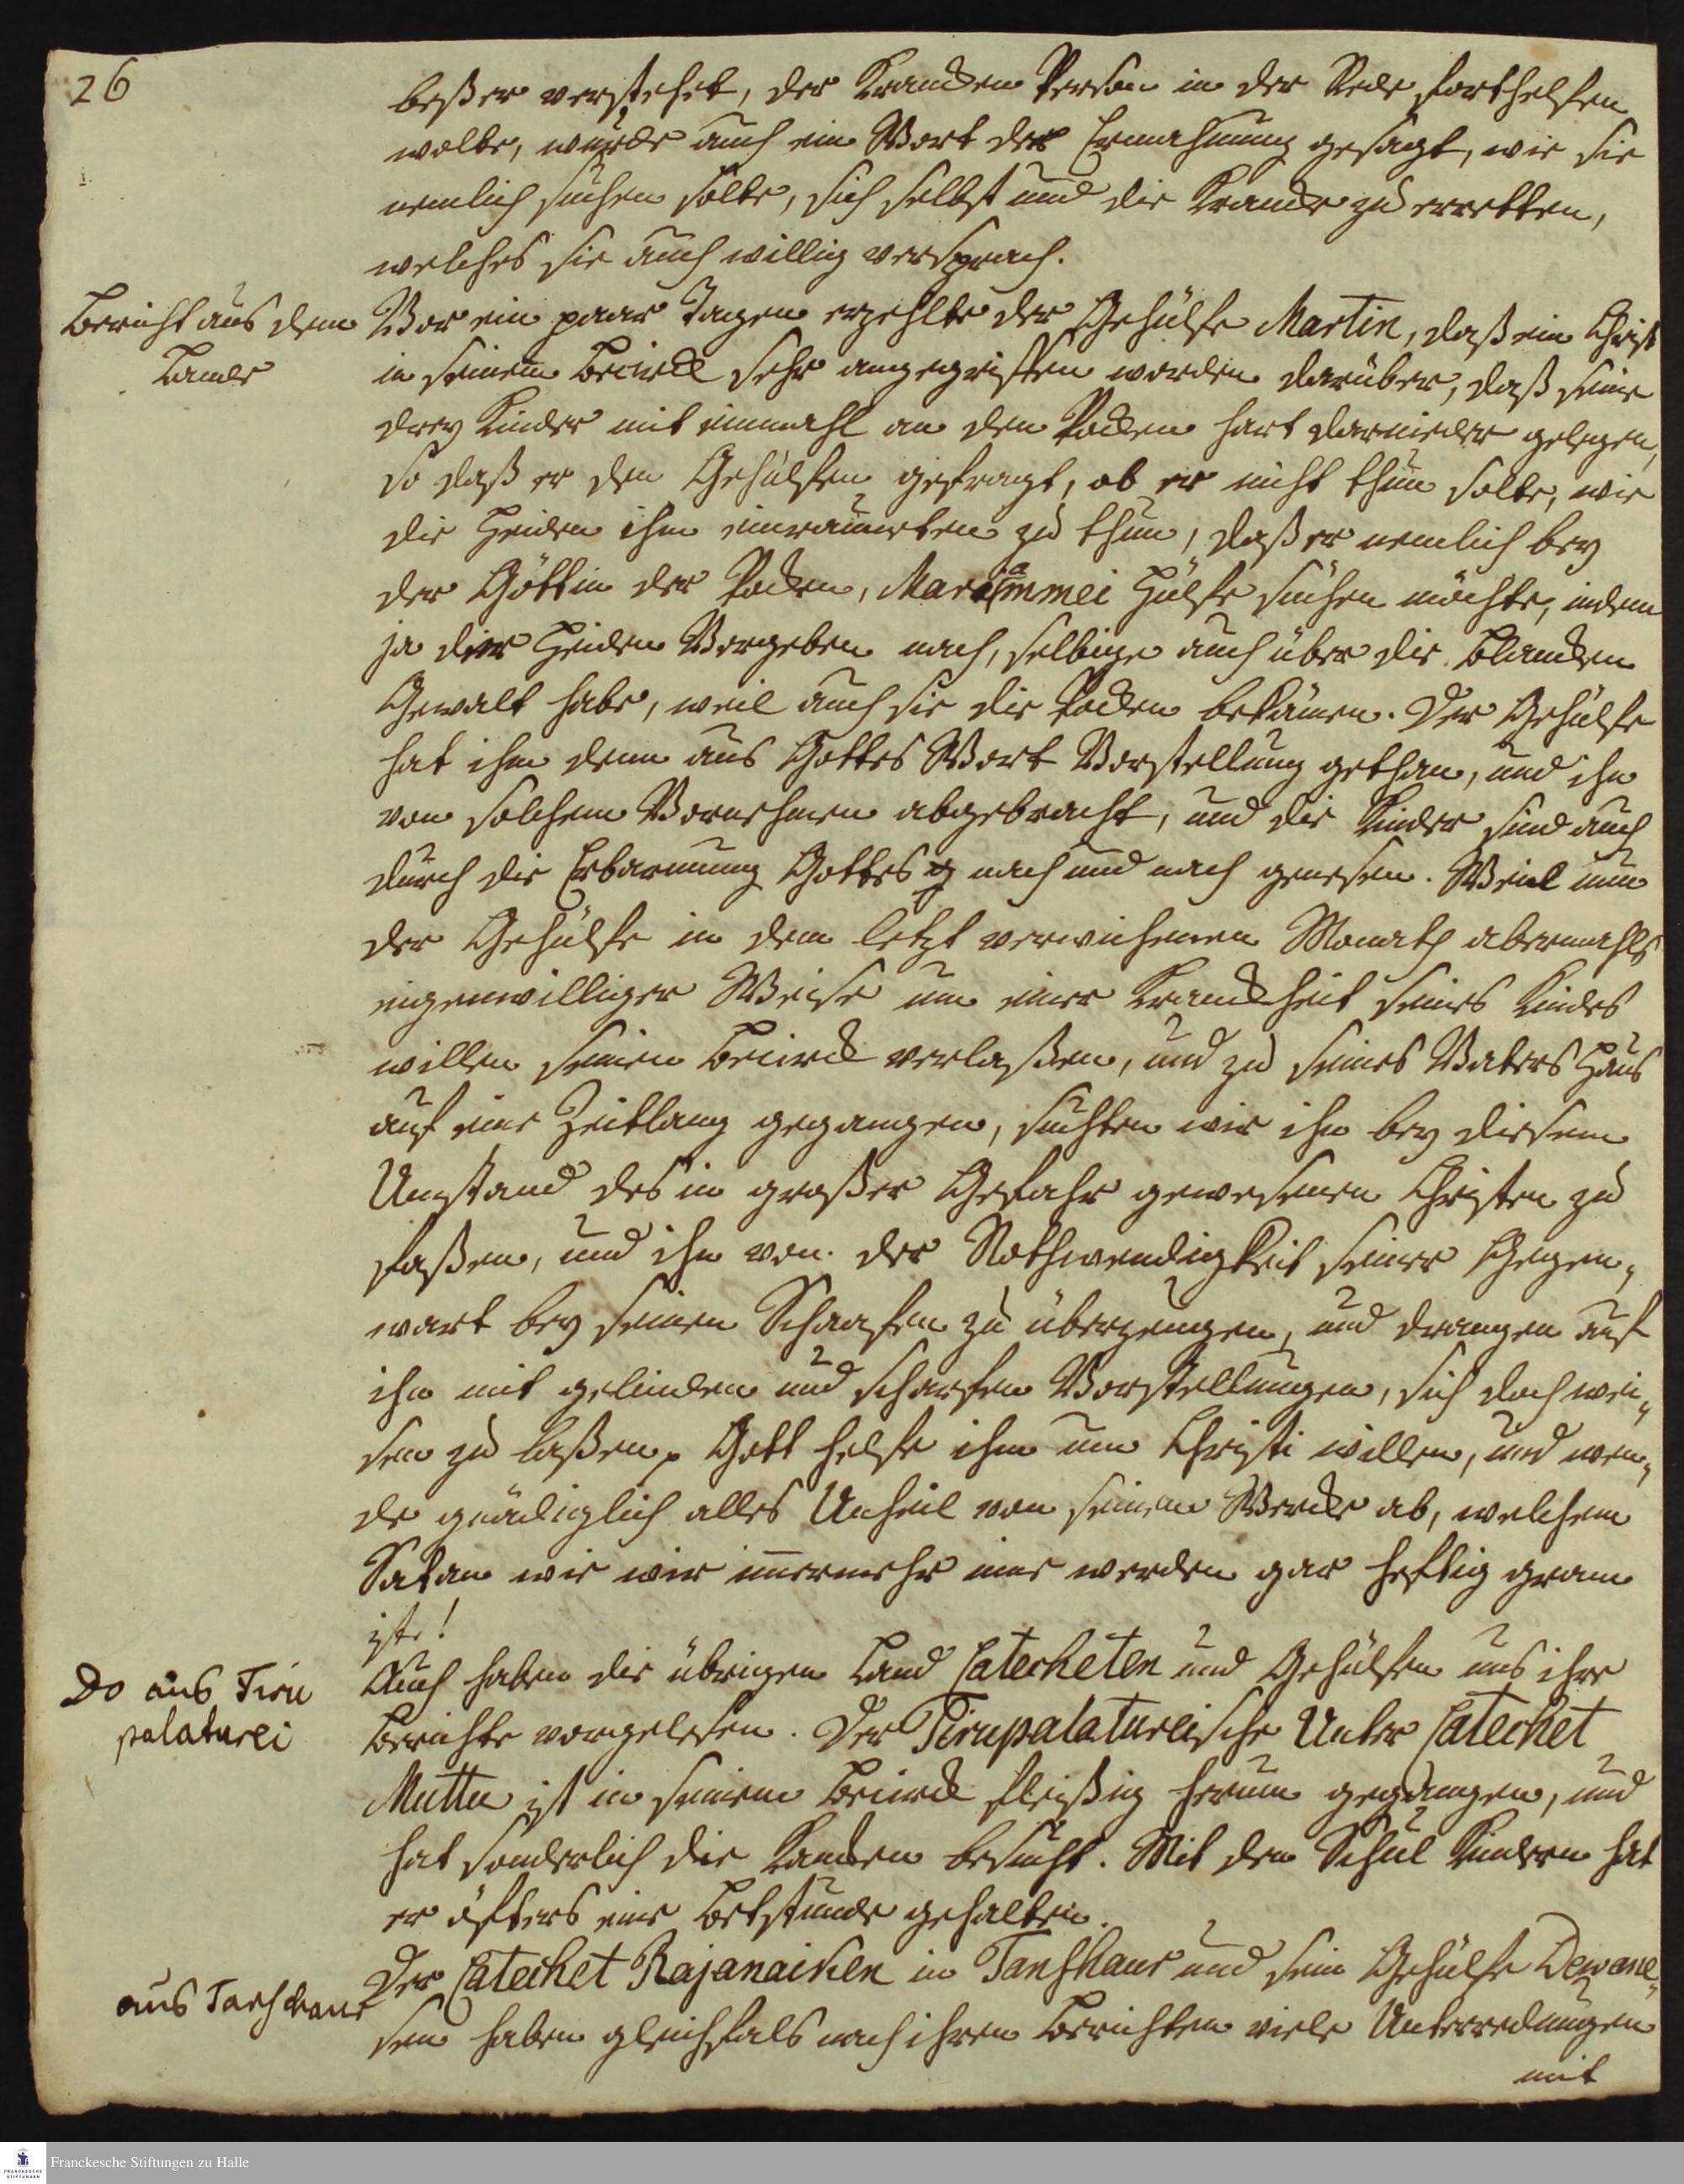 26
beßer verstehet, der Krancken Person in der Rede forthelfen
wolte, wurde auch ein Wort der Ermahnung gesagt, wie sie
nemlich suchen solte, sich selbst und die Krancke zu erretten,
welches sie auch willig versprach.
Bericht aus dem
Lande
Vor ein paar Tagen erzehlte der Gehülfe Martin, daß ein Christ
in seinem Bezirck sehr angegriffen worden darüber, daß seine
drey Kinder mit einmahl an den Pocken hart darnieder gelegen,
so daß er den Gehülfen gefragt, ob er nicht thun solte, wie
die Heiden ihm einräumeten zu thun, daß er nemlich bey
der Göttin der Pocken, Mariammei Hülfe suchen möchte, indem
ja der Heiden Vorgeben nach, selbige auch über die Blancken
Gewalt habe, weil auch sie die Pocken bekämen. Der Gehülfe
hat ihm denn aus Gottes Wort Vorstellung gethan, und ihn
von solchem Vornehmen abgebracht, und die Kinder sind auch
durch die Erbarmung Gottes nach und nach genesen. Weil nun
der Gehülfe in dem letzt verwichenen Monath abermahls
eigenwilliger Weise um einer Kranckheit seines Kindes
willen seinen Bezirck verlaßen, und zu seines Vaters Haus
auf eine Zeitlang gegangen, suchten wir ihn bey diesem
Umstand des in großer Gefahr gewesenen Christen zu
faßen, und ihn von der Nothwendigkeit seiner Gegen¬
wart bey seinen Schaafen zu überzeugen, und drangen auf
ihn mit gelinden und scharfen Vorstellungen, sich doch wei¬
sen zu laßen. Gott helfe ihm um Christi willen, und wen¬
de gnädiglich alles Unheil von seinem Wercke ab, welchem
Satan wie wir immermehr inne werden gar heftig gram
ist!
Do aus Tiru
palaturei
Auch haben die übrigen Land Catecheten und Gehülfen uns ihre
Berichte vorgelesen. Der Tirupalatureische Unter Catechet
Muttu ist in seinem Bezirck fleißig herum gegangen, und
hat sonderlich die Krancken besucht. Mit den Schul Kindern hat
er öfters eine Betstunde gehalten.
aus Tanschaur
Der Catechet Rajanaicken in Tanschaur und sein Gehülfe Dewane¬
sen haben gleichfals nach ihren Berichten viele Unterredungen
mit
Franckesche Stiftungen zu Halle